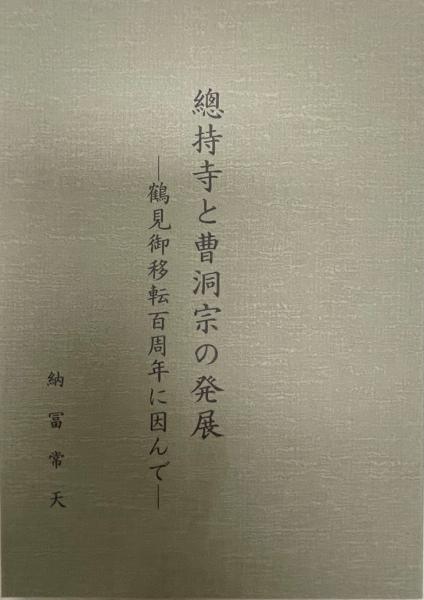 總持寺と曹洞宗の発展
―鶴見御移転百周年に因んで―
納冨常天